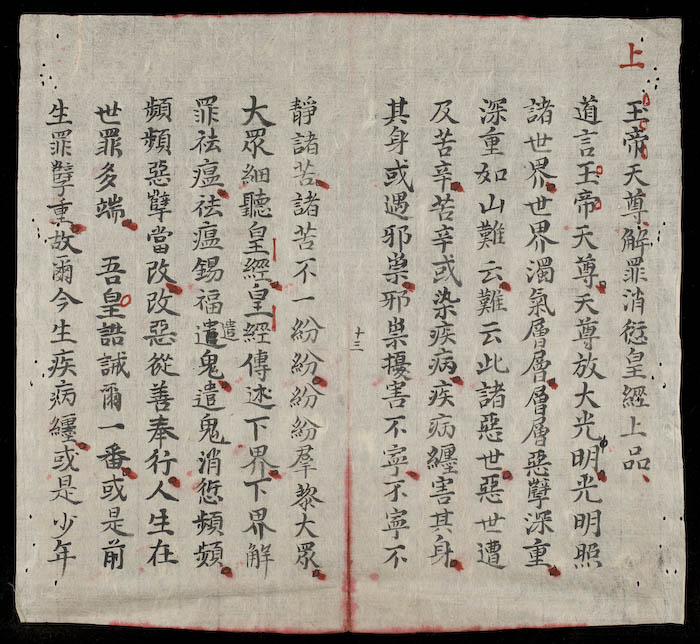 上
玉帝天尊解罪消愆皇經上品
道言玉帝天尊天尊放大光明光明照
諸世界世界濁氣層層層層惡孽深重
深重如山難云難云此諸惡世惡世遭
及苦辛苦辛或染疾病疾病纏害其身
其身或遇邪祟邪祟擾害不寧不寧不
十三
靜諸苦諸苦不一紛紛紛紛羣黎大眾
大眾細聽皇經皇經傳述下界下界解
罪祛瘟祛瘟錫福遣鬼遣鬼消愆頻頻
遣
頻頻惡孽當改改惡從善奉行人生在
世罪多端 吾皇誥誡爾一番或是前
生罪孽重故爾今生疾病纏或是少年